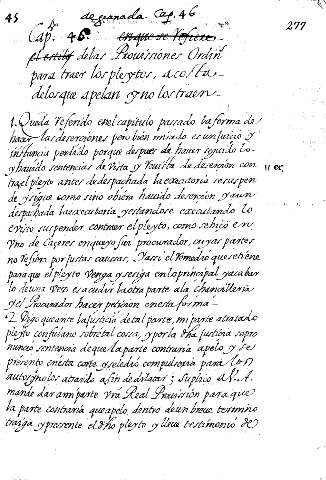 45
de granada Cap. 46
277
Cap. 46. en que se Refiere
el estilo de las Provissiones Ordin
para traer los pleytos, a costa
de los que apelan y no los traen
1. Queda Referido en el capitulo passado la forma de
hacer las deserciones pero bien mirado es un juicio y
instancia perdido porque despues de hacer seguido lo
y havido sentencias de Vista y Revista de desercion con
trae el pleyto antes de despachada la executoria se suspen
de y sigue como si no obiera havido desercion y aun
despachada la executoria y estandose executando lo
e visto suspender con traer el pleyto, como se hiço en
Uno de Caçeres en que yo fui procurador, cuyas partes
no Refiero por justas causas. Y assi el Remedio que se tiene
para que el pleyto Venga y se siga en lo principal y acabar
lo de una Vez es acudir la otra parte a la chancilleria
y el Procurador hacer peticion en esta forma
2. Digo que ante la justicia de tal parte, mi parte a tratado
pleyto con fulano sobre tal cosa, y por la dha justicia se pro
nuncio sentencia de que la parte contraria apelo, y se
presento en esta corte y se le dio compulsoria para los
autos y no los a traido a fin de dilatar; suplico a V. A.
mande dar a mi parte Vra Real Provission para que
la parte contraria que apelo, dentro de un breve termino
traiga y presente el dho pleyto y lleve testimonio de